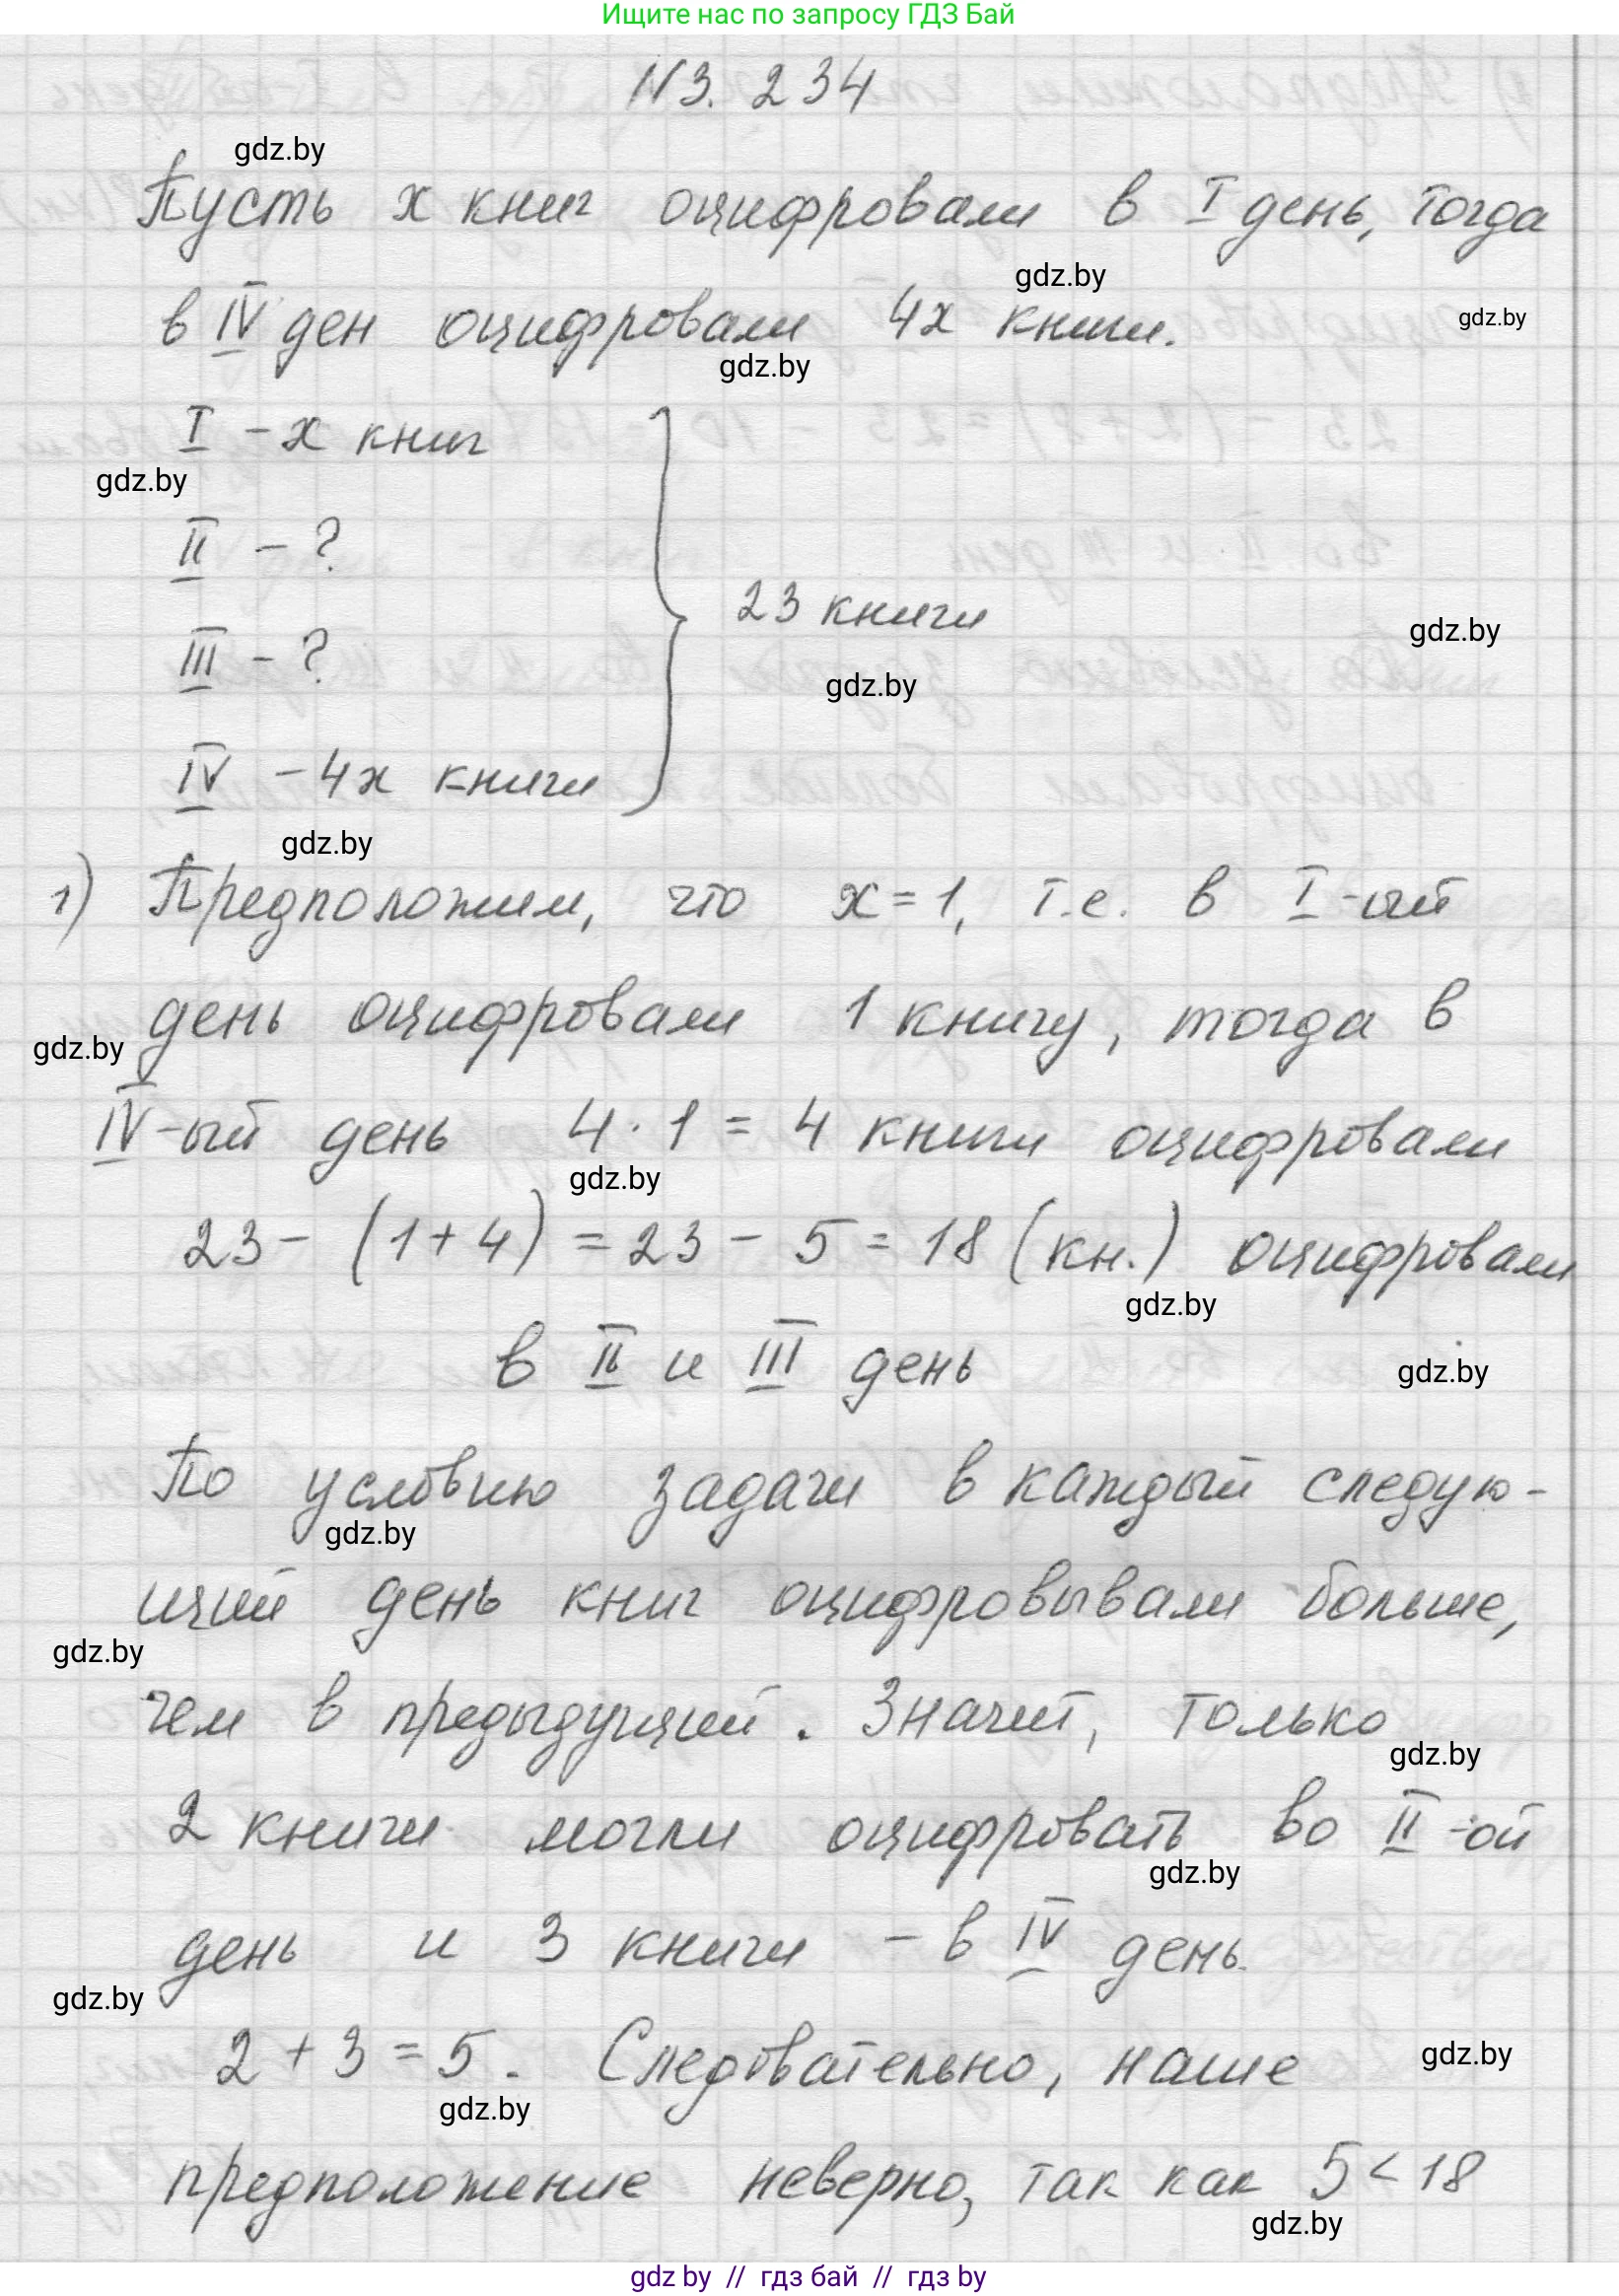 Ищите нас по запросу ГДЗ Бай
N3. 234
gdz.by
Пусть x книг оцифровали в I день, тогда
gdz.by
gdz.by
в IV ден оцифровали 4x книги.
gdz.by
I - x книг
gdz.by
II - ?
23 книги
gdz.by
III - ?
gdz.by
IV - 4x книги
gdz.by
1) Предположим, что x = 1, т.е. в I-ый
день оцифровали 1 книгу, тогда в
gdz.by
IV-ый день 4 · 1 = 4 книги оцифровали
gdz.by
23 - (1 + 4) = 23 - 5 = 18 (кн.) оцифровали
gdz.by
в II и III день
gdz.by
По условию задачи в каждый следую-
gdz.by
щий день книг оцифровывали больше,
gdz.by
чем в предыдущий. Значит, только
gdz.by
2 книги могли оцифровать во II-ой
gdz.by
день и 3 книги - в IV день.
gdz.by
2 + 3 = 5. Следовательно, наше
gdz.by
gdz.by
предположение неверно, так как 5 < 18
gdz.by
gdz by // гдз бай // гдз by